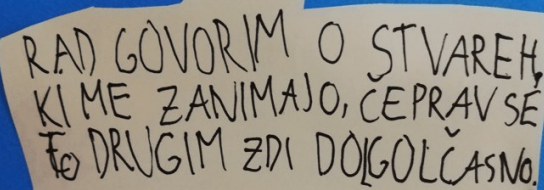 RAD GOVORIM O STVAREH,
KI ME ZANIMAJO, ČEPRAV SE
TO DRUGIM ZDI DOLGOLČASNO.